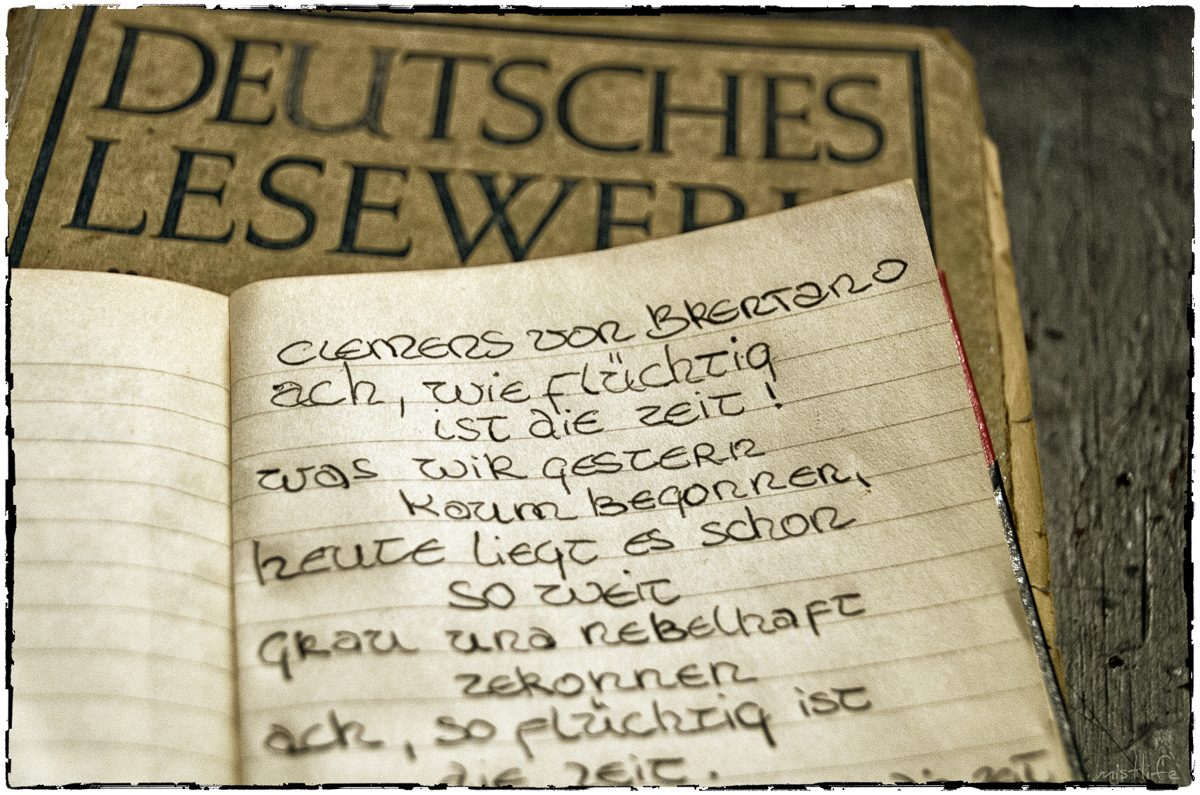 DEUTSCHES
LESEWERK
Clemens von Brentano
ach, wie flüchtig
ist die zeit!
was wir gestern
kaum begonnen,
heute liegt es schon
so weit
grau und nebelhaft
zeronnen
ach, so flüchtig ist
die zeit.
mistlife